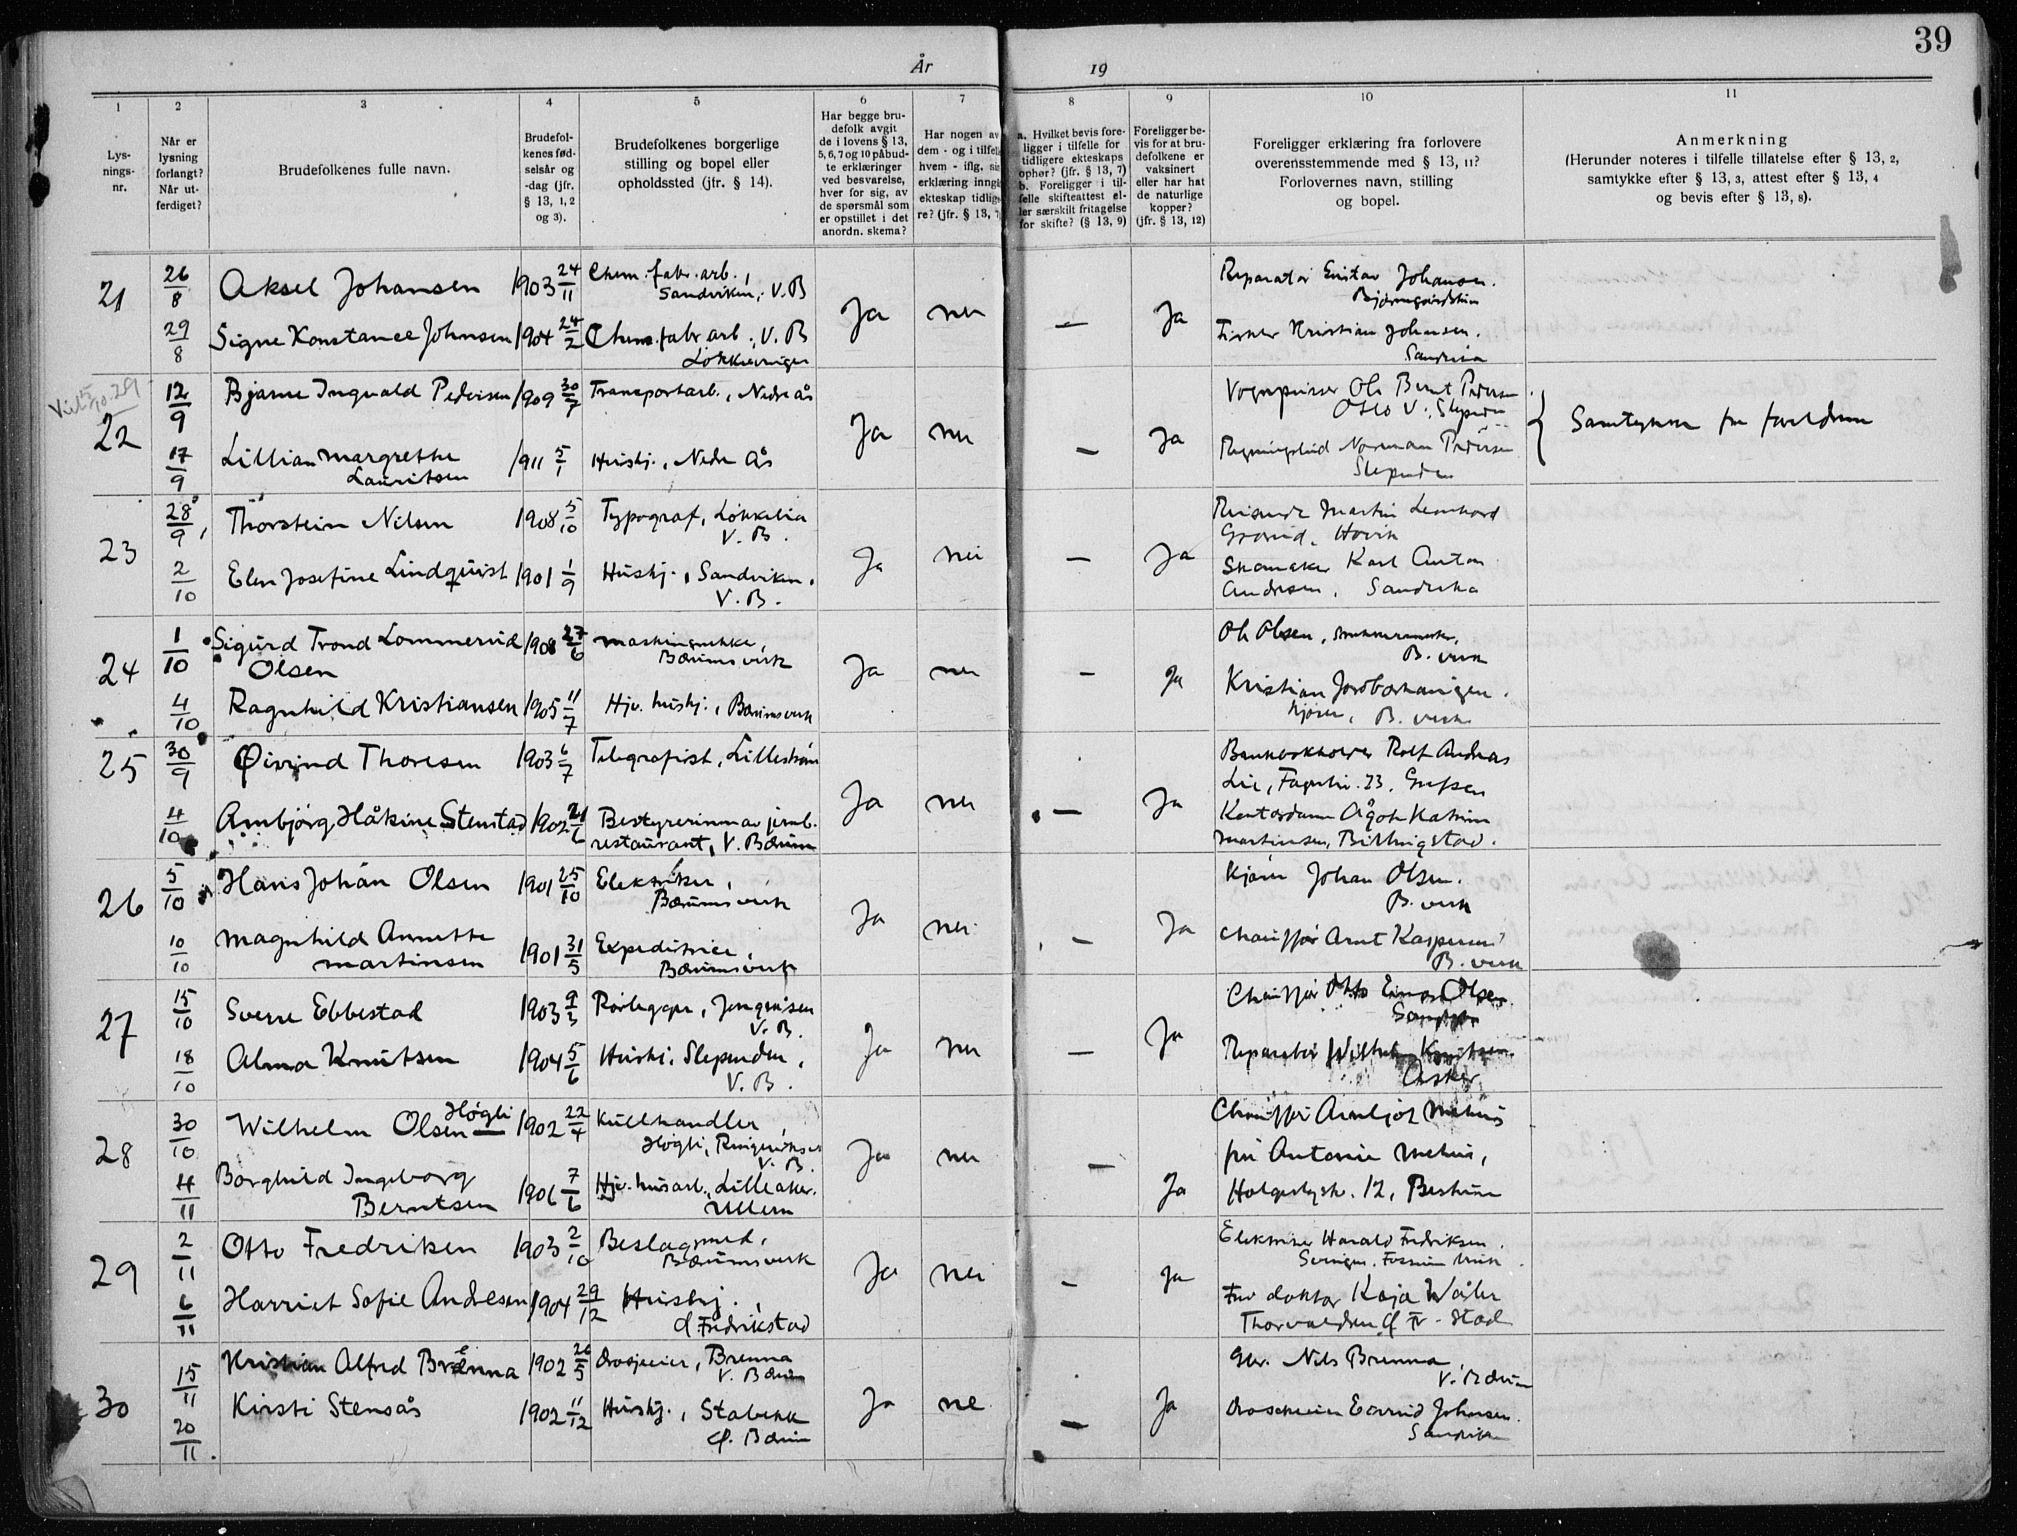 39
År 19
1 2 3 4 5 6 7 8 9 10 11
Lys-
nings-
nr.
Når er
lysning
forlangt?
Når ut-
ferdiget?
Brudefolkenes fulle navn.
Brudefol-
kenes fød-
selsår og
-dag (jfr.
§ 13, 1, 2
og 3).
Brudefolkenes borgerlige
stilling og bopel eller
opholdssted (jfr. § 14).
Har begge bru-
defolk avgit
de i lovens § 13,
5, 6, 7 og 10 påbud-
te erklæringer
ved besvarelse,
hver for sig, av
de spørsmål som
er opstillet i det
anordn. skema?
Har nogen av
dem - og i tilfelle
hvem - iflg. sin
erklæring inngå
ekteskap tidlige
re? (jfr. § 13, 7
a. Hvilket bevis fore-
ligger i tilfelle for
tidligere ekteskaps
ophør? (jfr. § 13, 7)
b. Foreligger i til-
felle skifteattest el-
ler særskilt fritagelse
for skifte? (§ 13, 9)
Foreligger be-
vis for at bru-
defolkene er
vaksinert
eller har hat
de naturlige
kopper?
(jfr. § 13, 12)
Foreligger erklæring fra forlovere
overensstemmende med § 13, 11?
Forlovernes navn, stilling
og bopel.
Anmerkning
(Herunder noteres i tilfelle tillatelse efter § 13, 2,
samtykke efter § 13, 3, attest efter § 13, 4
og bevis efter § 13, 8).
21 26/8 Aksel Johansen 1903 24/11 Chem. fabr. arb.,
Sandviken, V. B
Ja nei — Ja
Reparatør Gustav Johansen.
29/8 Signe Konstance Johnsen 1904 24/2 Chem. fabr. arb., V. B
Fisker Kristian Johansen.
Sandvika
22 12/9 Bjarne Ingvald Pedersen 1909 30/7 Transportarb., Nedre Ås
Ja nei — Ja
Ole Bernt Pedersen
Slependen
Samtykke fra foreldrene
17/9 Lillian Margrethe
Lauritsen 1911 5/1 Hushj., Nedre Ås
Norman Pedersen
Slependen
23 28/9 Thorstein Nilsen 1908 5/10 Typograf, Løkkelia
V. B.
Ja nei — Ja
Reisende Martin Leonhard
Høvik
2/10 Elen Josefine Lindquist 1901 1/9 Hushj., Sandviken,
V. B.
Skomaker Karl Anton
Andresen, Sandvika
24 1/10 Sigurd Trond Lommerud
Olsen 1908 27/6
Bærumsverk
Ja nei — Ja
Ole Olsen,
B. verk
4/10 Ragnhild Kristiansen 1905 11/7 Hjv. hushj., Bærumsverk
Kristian
kjører, B. verk
25 30/9 Øivind Thoresen 1903 6/7 Telegrafist, Lillestrøm
Ja nei — Ja
Bankbokholder Rolf Andreas
Lie, Fagerli. 23, Grefsen
4/10 Arnbjørg Håkine Stenstad 1902 21/6 Bestyrerinne av jernb.
restaurant, V. Bærum
Kontordame Ågot Katrine
Martinsen, Billingstad.
26 5/10 Hans Johan Olsen 1901 25/10 Elektriker,
Bærumsverk
Ja nei — Ja
Kjører Johan Olsen.
B. verk
10/10 Magnhild Annette
Martinsen 1901 31/5 Expeditrice,
Bærumsverk
Chauffør Arnt Kaspersen
B. verk
27 15/10 Sverre Ebbestad 1903 9/3 Rørlegger, Jongsåsen
V. B.
Ja nei — Ja
Chauffør Otto Olsen.
18/10 Alma Knutsen 1904 5/6 Hushj. Slependen,
V. B.
Reparatør Wilhelm Knutsen
Asker
28 30/10 Wilhelm Olsen Høgli 1902 22/4 Kullhandler
Høgli,
V. B.
Ja nei — Ja
Chauffør Arnljot
4/11 Borghild Ingeborg
Berntsen 1906 7/6 Hjv. husarb., Lilleaker.
Ullern
fru Antonie
12, Bestum
29 2/11 Otto Fredriksen 1903 2/10 Beslagsmed,
Bærumsverk
Ja nei — Ja
Elektriker Harald Fredriksen.
6/11 Harriet Sofie Andresen 1904 29/12 Hushj.,
Gl. Fredrikstad
Fru doktor Kaja Wåler
Thorvaldsen Gl Fr. stad
30 15/11 Kristian Alfred Brenna 1902 26/5 Drosjeeier, Brenna
V. Bærum
Ja nei — Ja
Gbr. Nils Brenna,
V. Bærum
20/11 Kirsti Stensås 1902 11/12 Hushj., Stabekk
Ø. Bærum
Droscheeier Eivind Johnsen.
Sandvika